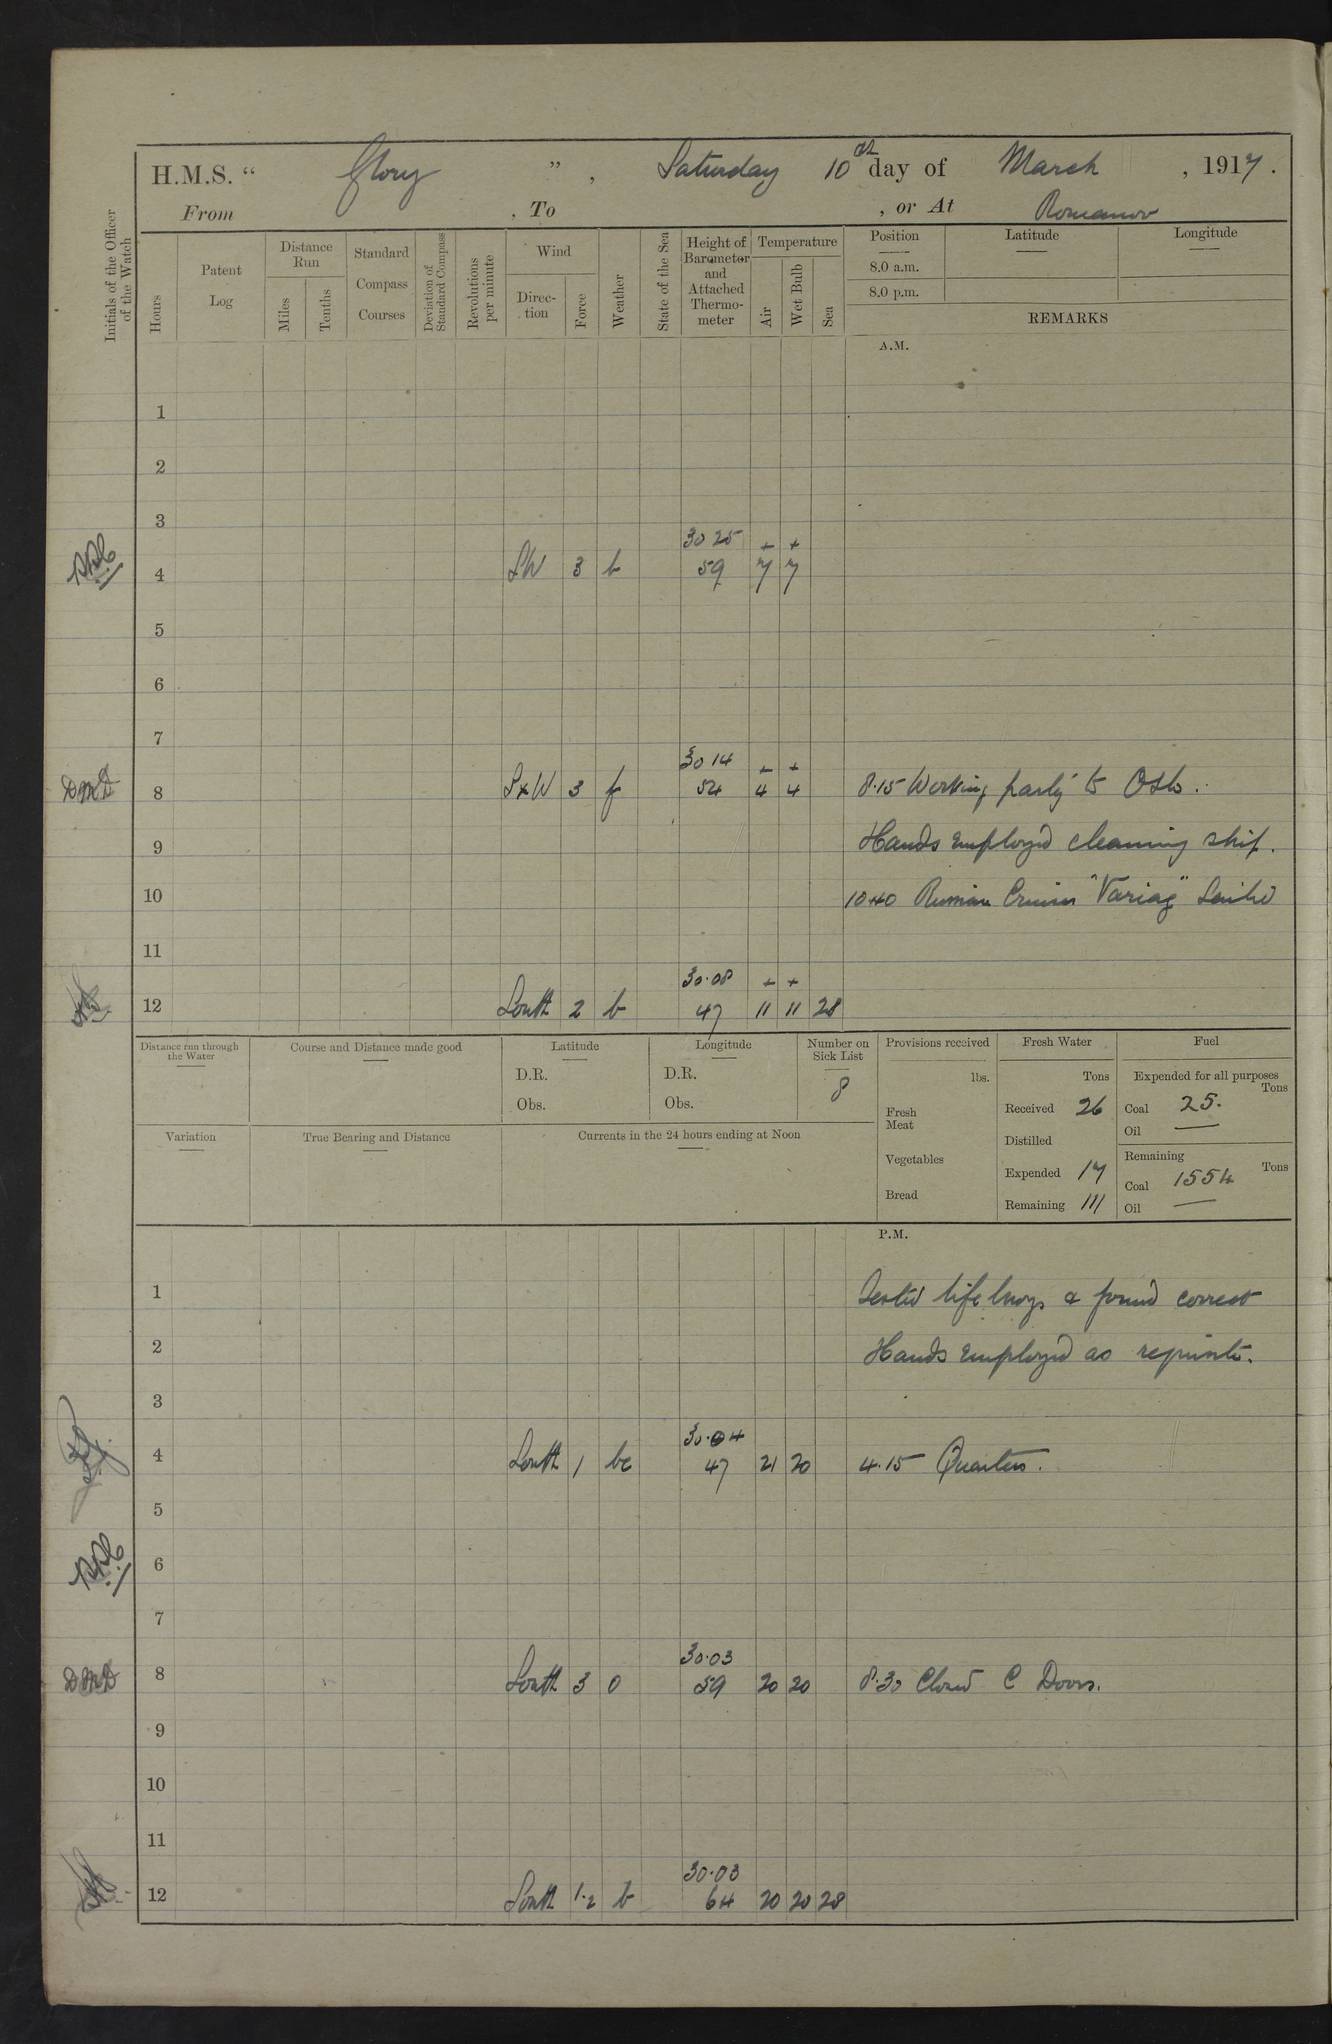 H.M.S. “ Glory ” , Saturday 10th day of March , 1917 .
From , To , or At Romanov
Initials of the Officer of the Watch
Hours
Patent Log
Distance Run
Miles
Tenths
Standard Compass Courses
Deviation of Standard Compass
Revolutions per minute
Wind
Direc-tion
Force
Weather
State of the Sea
Height of Barometer and Attached Thermo-meter
Temperature
Air
Wet Bulb
Sea
Position
8.0 a.m.
8.0 p.m.
Latitude
Longitude
REMARKS
A.M.
1
2
3
30 25 + +
4 SW 3 b 59 7 7
5
6
7
30 14 + +
DMD 8 SxW 3 f 54 4 4 8.15 Working party to
9 Hands employed cleaning ship.
10 10.40 Russian Cruiser "Variag" Sailed
11
30.08 + +
12 South 2 b 47 11 11 28
Distance run through the Water
Course and Distance made good
Latitude
D.R.
Obs.
Longitude
D.R.
Obs.
Number on Sick List
8
Provisions received
lbs.
Fresh Meat
Vegetables
Bread
Fresh Water
Tons
Received 26
Distilled
Expended 17
Remaining 111
Fuel
Expended for all purposes
Tons
Coal 25.
Oil —
Remaining
Tons
Coal 1554
Oil —
Variation
True Bearing and Distance
Currents in the 24 hours ending at Noon
P.M.
1 Tested life buoys & found correct
2 Hands employed as requisite.
3
30.04
4 South 1 bc 47 21 20 4.15 Quarters.
5
6
7
30.03
DMD 8 South 3 o 59 20 20 8.30 Closed C Doors.
9
10
11
30.03
12 South 1.2 b 64 20 20 28